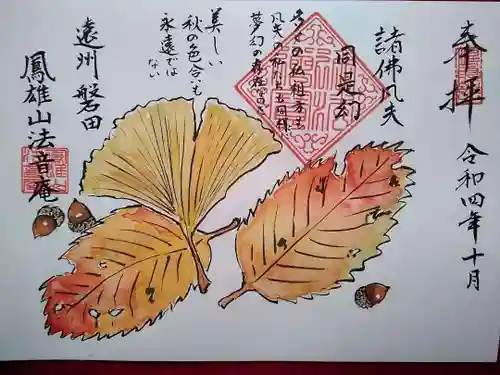 奉拝
令和四年十月
諸佛凡夫
同是幻
の仏祖方も
凡夫の
夢幻の存在
美しい
秋の色合いも
永遠では
ない
遠州 磐田
鳳雄山法音庵